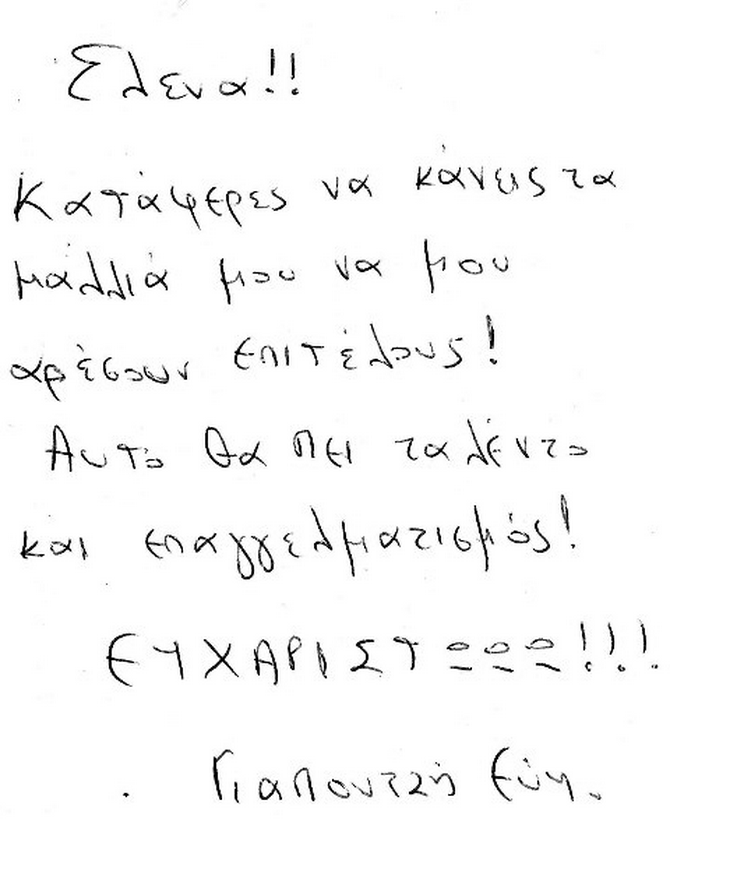 Ελενα!!
Κατάφερες να κάνεις τα
μάλλιά μου να μου
αρέσουν επιτέλους!
Αυτό θα πει ταλέντο
και επαγγελματισμός!
ΕΥΧΑΡΙΣΤΩΩΩ!!!
Γιαπουτζή Εύη.